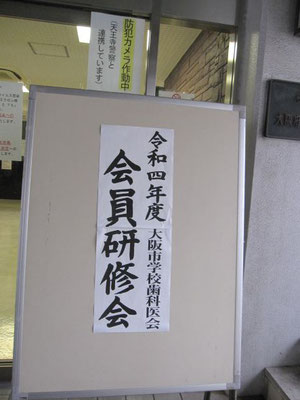 防犯カメラ作動中
(天王寺警察と
連携しています)
令和四年度 大阪市学校歯科医会
会員研修会